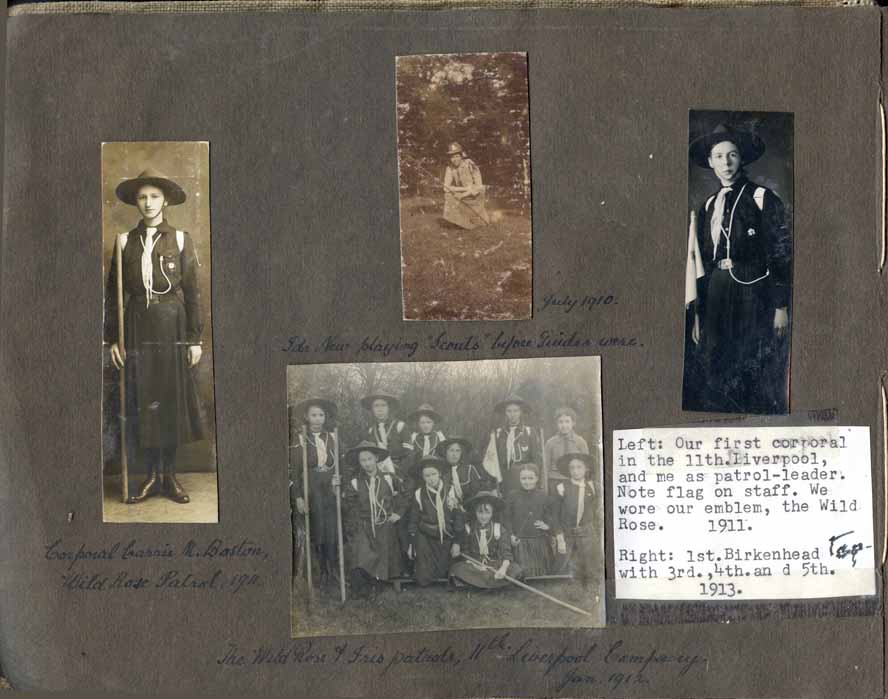 July 1910.
Ida New playing "Scouts" before Guides were.
Left: Our first corporal
in the 11th.Liverpool,
and me as patrol-leader.
Note flag on staff. We
wore our emblem, the Wild
Rose. 1911.
Right: 1st.Birkenhead Top
with 3rd.,4th.an d 5th.
1913.
Corporal Carrie M. Boston,
Wild Rose Patrol, 1911.
The Wild Rose & Iris patrols, 11th Liverpool Company.
Jan. 1912.